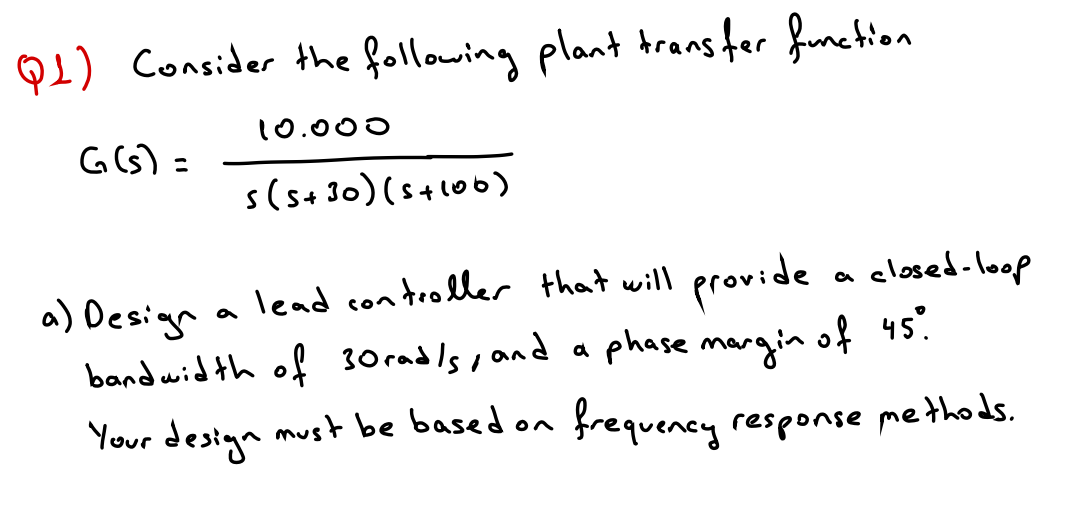 Q1) Consider the following plant transfer function
G(s) = 10.000 / s(s+30)(s+100)
a) Design a lead controller that will provide a closed-loop
bandwidth of 30rad/s, and a phase margin of 45°.
Your design must be based on frequency response methods.